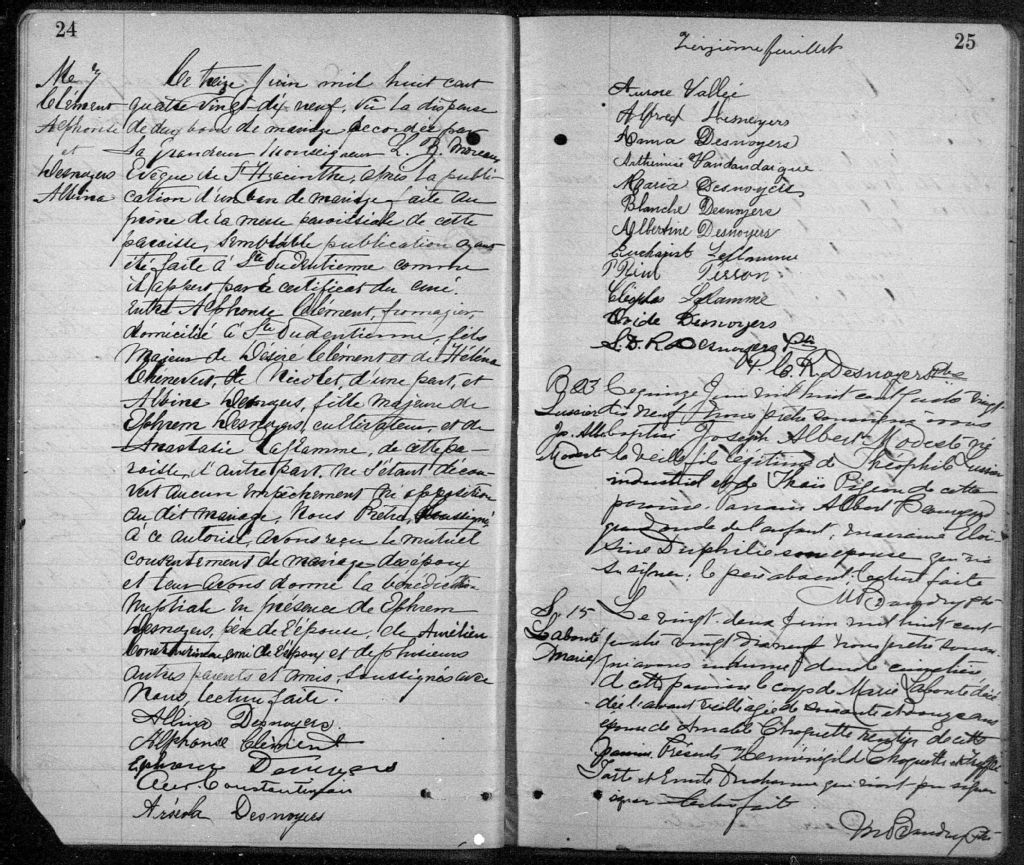 24
M 7
Clément
Alphonse
et
Desnoyers
Albina
Le treize Juin mil huit cent
quatre vingt-dix neuf, vu la dispense
de deux bans de mariage accordée par
Sa Grandeur Monseigneur L. Z. Moreau
Evêque de St Hyacinthe, après la publi-
cation d'un ban de mariage faite au
prône de la messe paroissiale de cette
paroisse, semblable publication ayant
été faite à Ste Pudentienne comme
il appert par le certificat du curé.
Entre Alphonse Clément, fromager,
domicilié à Ste Pudentienne, fils
majeur de Désiré Clément et de Héléna
Chenevert, de Nicolet, d'une part, et
Albina Desnoyers, fille majeure de
Ephrem Desnoyers, cultivateur, et de
Anastasie Laflamme, de cette pa-
roisse, d'autre part, ne s'étant décou-
vert aucun empêchement ni opposition
au dit mariage, Nous Prêtre, soussigné
à ce autorisé, avons reçu le mutuel
consentement de mariage des époux
et leur avons donné la bénédiction
nuptiale en présence de Ephrem
Desnoyers, père de l'épouse, de Aurélien
Constantineau, ami de l'époux et de plusieurs
autres parents et amis soussignés avec
Nous, lecture faite.
Albina Desnoyers
Alphonse Clément
Ephrem Desnoyers
Aur. Constantineau
Arséola Desnoyers
25
feuillet
Aurore Vallée
Alfred Desnoyers
Anna Desnoyers
Vandandaigue
Maria Desnoyers
Blanche Desnoyers
Albertine Desnoyers
Eucharist Laflamme
Tesson
Cléophas Laflamme
Ovide Desnoyers
L. D. R. Desnoyers Ptre
P. C. R. Desnoyers Ptre
B 23
Lussier
Jos. Alb.
Modeste
Le quinze Juin mil huit cent quatre vingt
dix neuf Nous prêtre soussigné avons
baptisé Joseph Albert Modeste né
la veille fils légitime de Théophile Lussier
industriel et de Thaïs Pigeon de cette
paroisse. Parrain Albert
grand oncle de l'enfant, marraine Eloi-
sine Duphilie son épouse qui n'a
su signer; le père absent. Lecture faite
M Beaudry ptre
S 15
Labonté
Marie
Le vingt deux Juin mil huit cent
quatre vingt dix neuf Nous prêtre soussi-
gné avons inhumé dans le cimetière
de cette paroisse le corps de Marie Labonté décé-
dée l'avant veille âgée de soixante et onze ans
épouse de Amable Choquette rentier de cette
paroisse. Présents Herménégilde Choquette et Trefflé
Forte et Emile Ducharme qui n'ont pu signer
Lecture faite
M Beaudry ptre